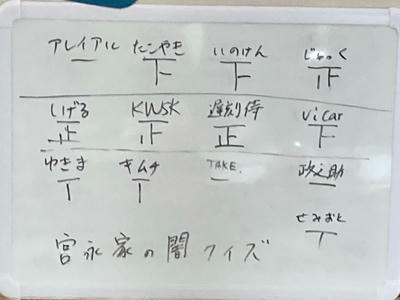 アレイアル たこやき いのけん じゅっく
一 下 下 正
しげる KWSK 遅刻侍 vicar
正 正 正 下
ゆきま キムチ TAKE. 政之助
丅 丅 一 一
せみおと
丅
宮永家の闇クイズ